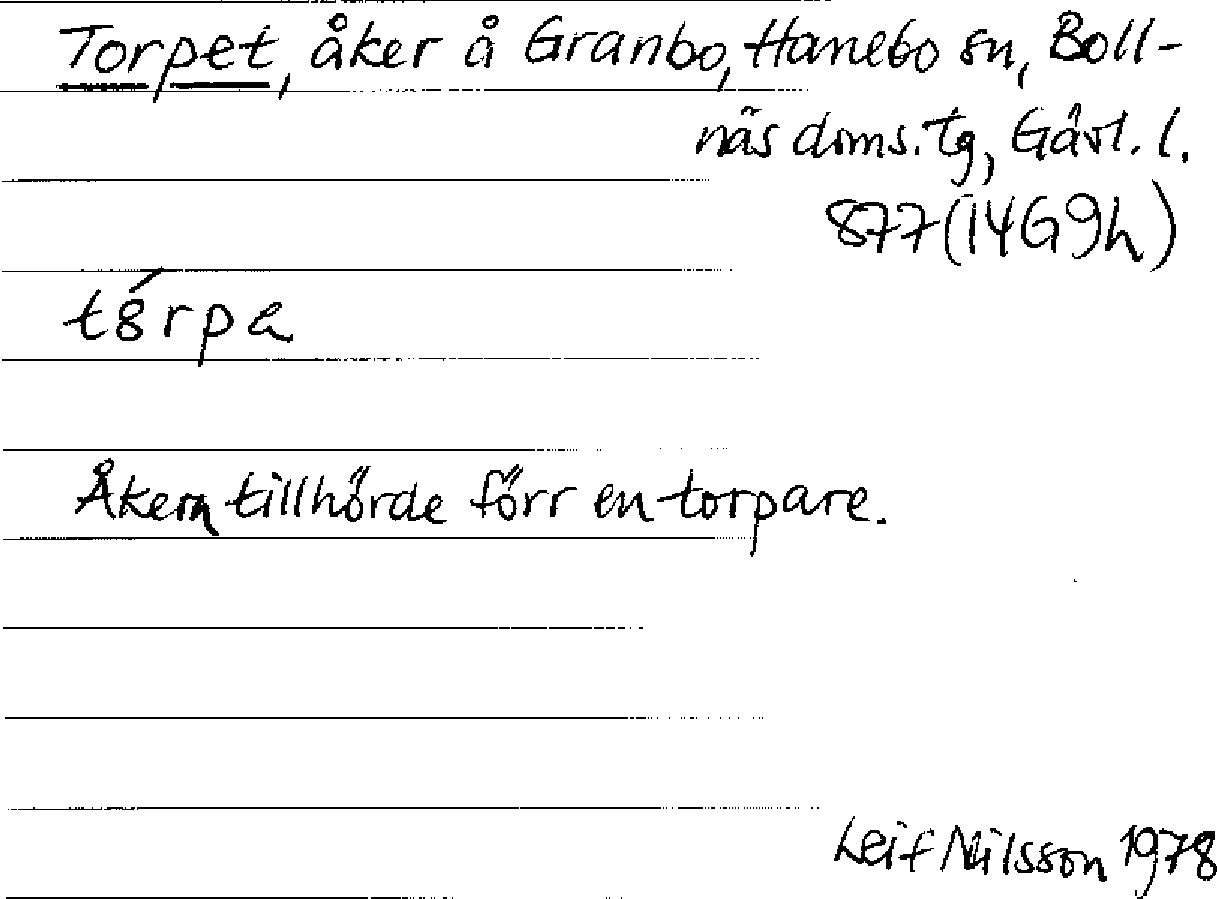 Torpet, åker å Granbo, Hanebo sn, Boll-
näs doms.tg, Gävl. l.
877 (14G9h)
Åkern tillhörde förr en torpare.
Leif Nilsson 1978